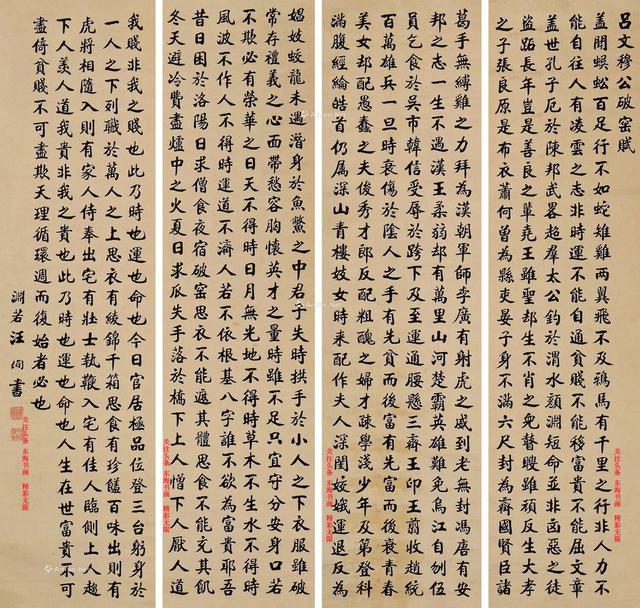 呂文穆公破窑賦
蓋聞蜈蚣百足行不如蛇雉雞兩翼飛不及鴉馬有千里之行非人力不
能自往人有凌雲之志非時運不能自通貧賤不能移富貴不能屈文章
蓋世孔子厄於陳邦武畧超羣太公釣於渭水顏淵短命並非函惡之徒
盜跖長年豈是善良之輩堯王雖聖却生不肖之免瞽瞍雖頑反生大孝
之子張良原是布衣蕭何曾為縣吏晏子身不滿六尺封為齊國賢臣諸
葛手無縛雞之力拜為漢朝軍師李廣有射虎之威到老無封馮唐有安
邦之志一生不遇漢王柔弱却有萬里山河楚霸英雄難免烏江自刎伍
員乞食於吳市韓信受辱於跨下及至運通腰懸三齊王印王翦收趙統
百萬雄兵一旦時衰傷於陰人之手有先貧而後富有先富而後衰青春
美女却配愚蠢之夫俊秀才郎反配粗醜之婦才疎學淺少年及第登科
滿腹經綸皓首仍属深山青樓妓女時來配作夫人深閨姣娥運退反為
娼妓蛟龍未遇潛身於魚鱉之中君子失時拱手於小人之下衣服雖破
常存禮義之心面帶愁容胸懷英才之量時雖不足只宜守分安身口若
不欺必有榮華之日天不得時日月無光地不得時草木不生水不得時
風波不作人不得時運道不濟人若不依根基八字誰不欲為富貴耶吾
昔日困於洛陽日求僧食夜宿破窑思衣不能遮其體思食不能充其飢
冬天避冷費盡爐中之火夏日求瓜失手落於橋下上人憎下人厭人道
我賤非我之賤也此乃時也運也命也今日官居極品位登三台躬身於
一人之下列職於萬人之上思衣有綾錦千箱思食有珍饈百味出則有
虎將相隨入則有家人侍奉出宅有壯士執鞭入宅有佳人臨側上人趨
下人羨人道我貴非我之貴也此乃時也運也命也人生在世富貴不可
盡倚貧賤不可盡欺天理循環週而復始者必也
淵若汪洵書
关注头条 东海书画 精彩无限
关注头条 东海书画 精彩无限
关注头条 东海书画 精彩无限
关注头条 东海书画 精彩无限